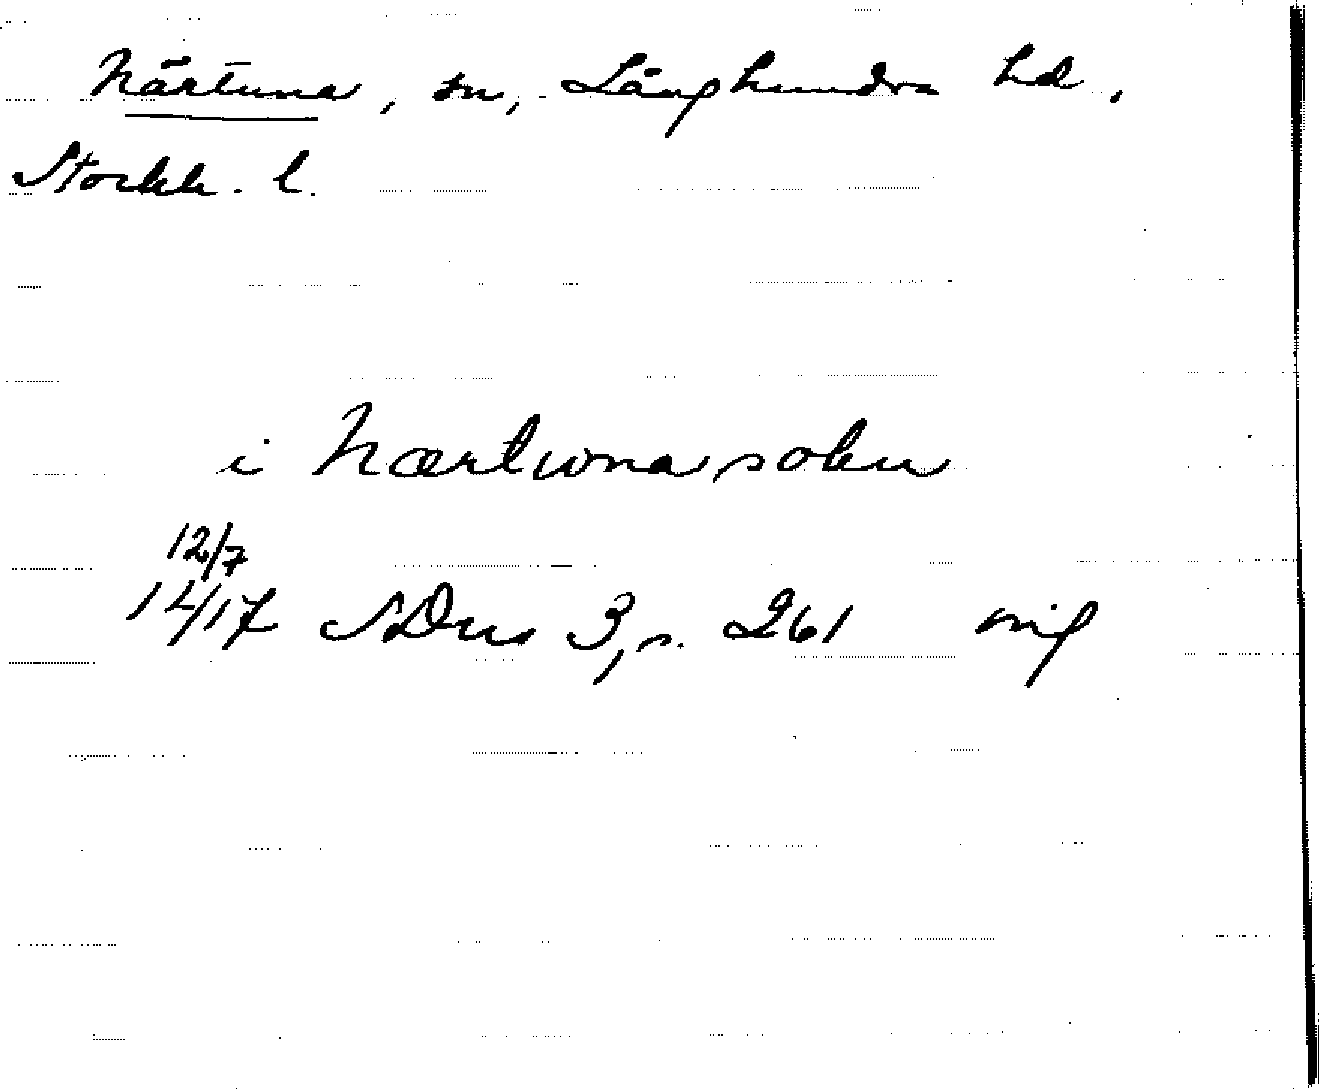 Närtuna, sn, Långhundra hd,
Stockh. l.
i Nærtwna sokn
12/7
1417 SDns 3, s. 261 orig